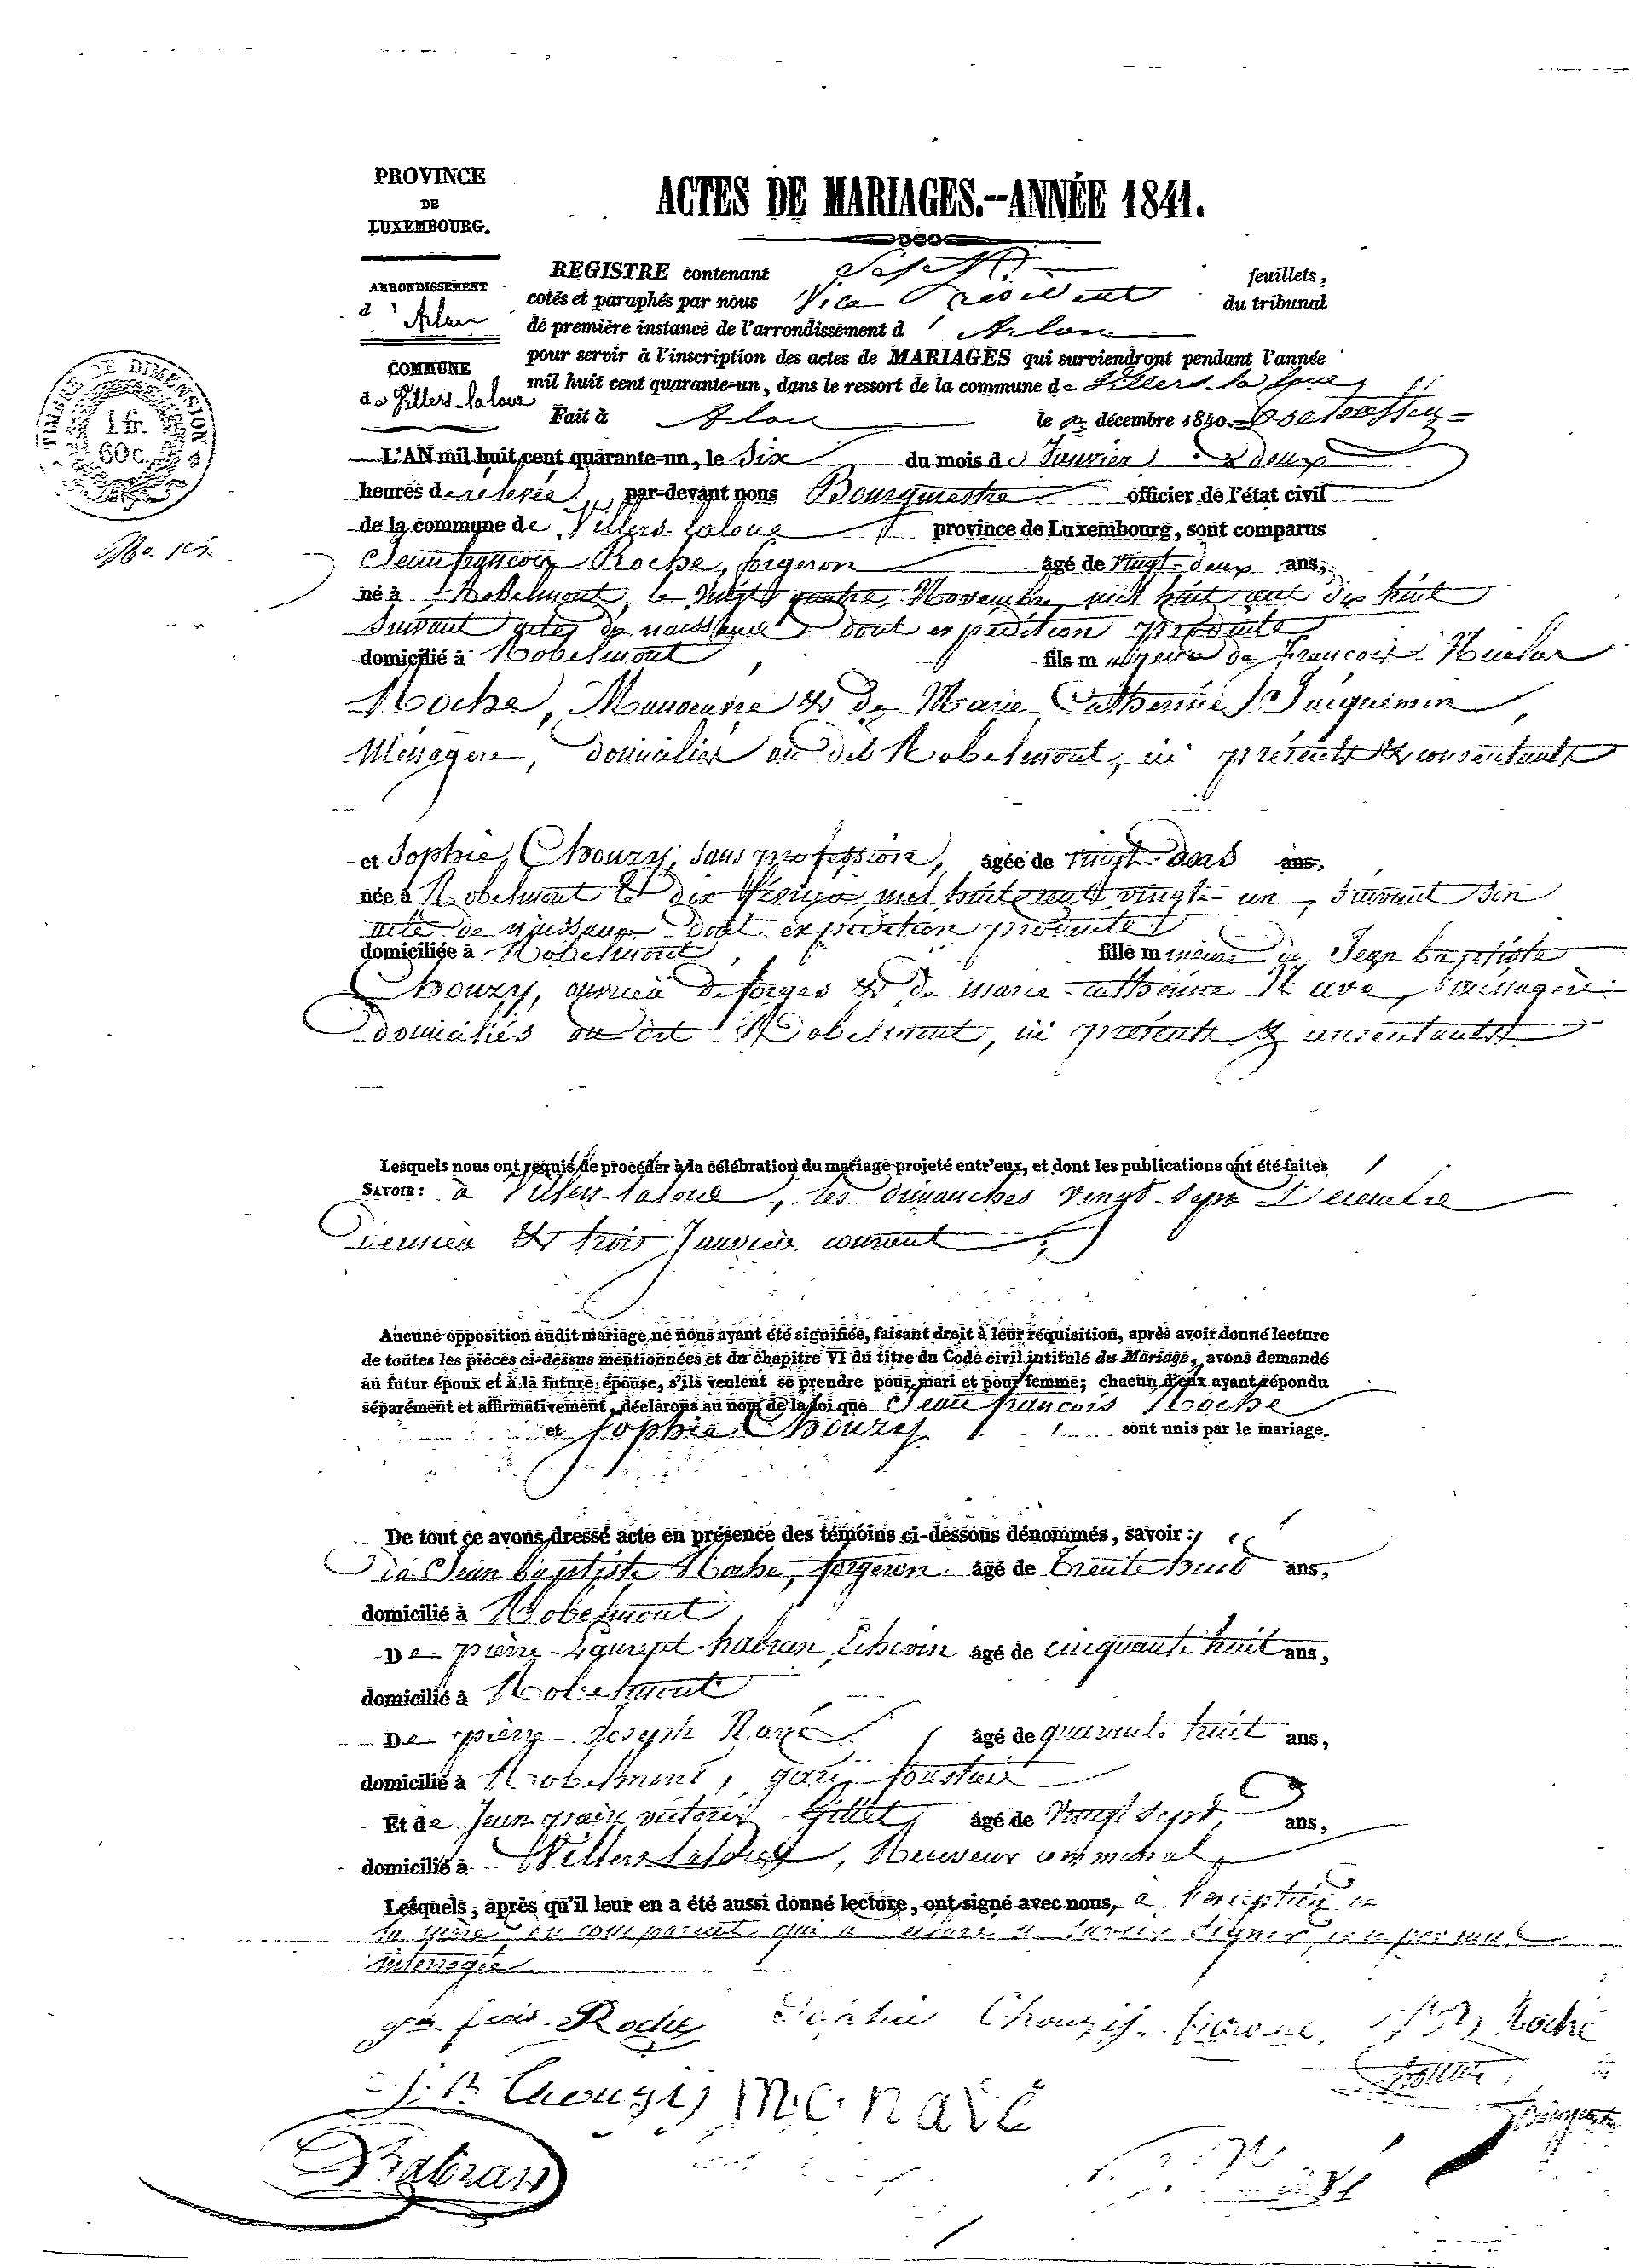 PROVINCE
DE
LUXEMBOURG.
ACTES DE MARIAGES.--ANNÉE 1841.
ARRONDISSEMENT
d' Arlon
COMMUNE
de Villers-laloue
TIMBRE DE DIMENSION
1 fr.
60 c.
REGISTRE contenant Sept feuillets,
cotés et paraphés par nous Vice Président du tribunal
de première instance de l'arrondissement d' Arlon
pour servir à l'inscription des actes de MARIAGES qui surviendront pendant l'année
mil huit cent quarante-un, dans le ressort de la commune de Villers-la loue
Fait à Arlon le décembre 1840.
L'AN mil huit cent quarante-un, le Six du mois de Janvier à deux
heures de relevée, par-devant nous Bourgmestre officier de l'état civil
de la commune de Villers-laloue province de Luxembourg, sont comparus
Jean françois Roche, forgeron âgé de vingt-deux ans,
né à Robelmont, le vingt quatre Novembre mil huit cent dix huit
suivant acte de naissance dont expédition produite
domicilié à Robelmont fils majeur de François Nicolas
Roche, Manoeuvre & de Marie Catherine Jacquemin,
Ménagère, domiciliés au dit Robelmont, ici présents & consentants
et Sophie Chouzy, sans profession, âgée de vingt ans ans,
née à Robelmont le dix février mil huit cent vingt-un, suivant son
acte de naissance dont expédition produite
domiciliée à Robelmont fille mineure de Jean baptiste
Chouzy, ouvrier de forges & de marie-catherine Navé, ménagère
domiciliés au dit Robelmont, ici présents & consentants
Lesquels nous ont requis de procéder à la célébration du mariage projeté entr'eux, et dont les publications ont été faites
SAVOIR: à Villers-laloue, les dimanches vingt-sept Décembre
dernier & trois Janvier courant
Aucune opposition audit mariage ne nous ayant été signifiée, faisant droit à leur réquisition, après avoir donné lecture
de toutes les pièces ci-dessus mentionnées et du chapitre VI du titre du Code civil intitulé du Mariage, avons demandé
au futur époux et à la future épouse, s'ils veulent se prendre pour mari et pour femme; chacun d'eux ayant répondu
séparément et affirmativement, déclarons au nom de la loi que Jean françois Roche
et Sophie Chouzy sont unis par le mariage.
De tout ce avons dressé acte en présence des témoins ci-dessous dénommés, savoir:
De Jean baptiste Roche, forgeron âgé de trente huit ans,
domicilié à Robelmont
De pierre-Laurent habran, Echevin âgé de cinquante huit ans,
domicilié à Robelmont
De pierre-Joseph Navé âgé de quarante huit ans,
domicilié à Robelmont, garde forestier
Et de Jean victoire Gillet, âgé de vingt sept ans,
domicilié à Villers laloue, Receveur communal
Lesquels, après qu'il leur en a été aussi donné lecture, ont signé avec nous, à l'exception de
la mère du comparant qui a déclaré ne savoir signer, de ce par nous
interrogée
Jn frois Roche Sophie Chouzy JB Roche
J. B. Chouzy M.C. navé
Habran